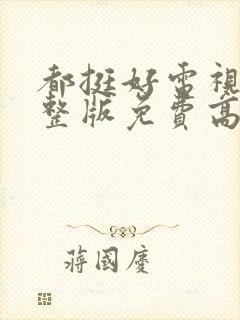 都挺好電視
整版免費高
蔣國慶